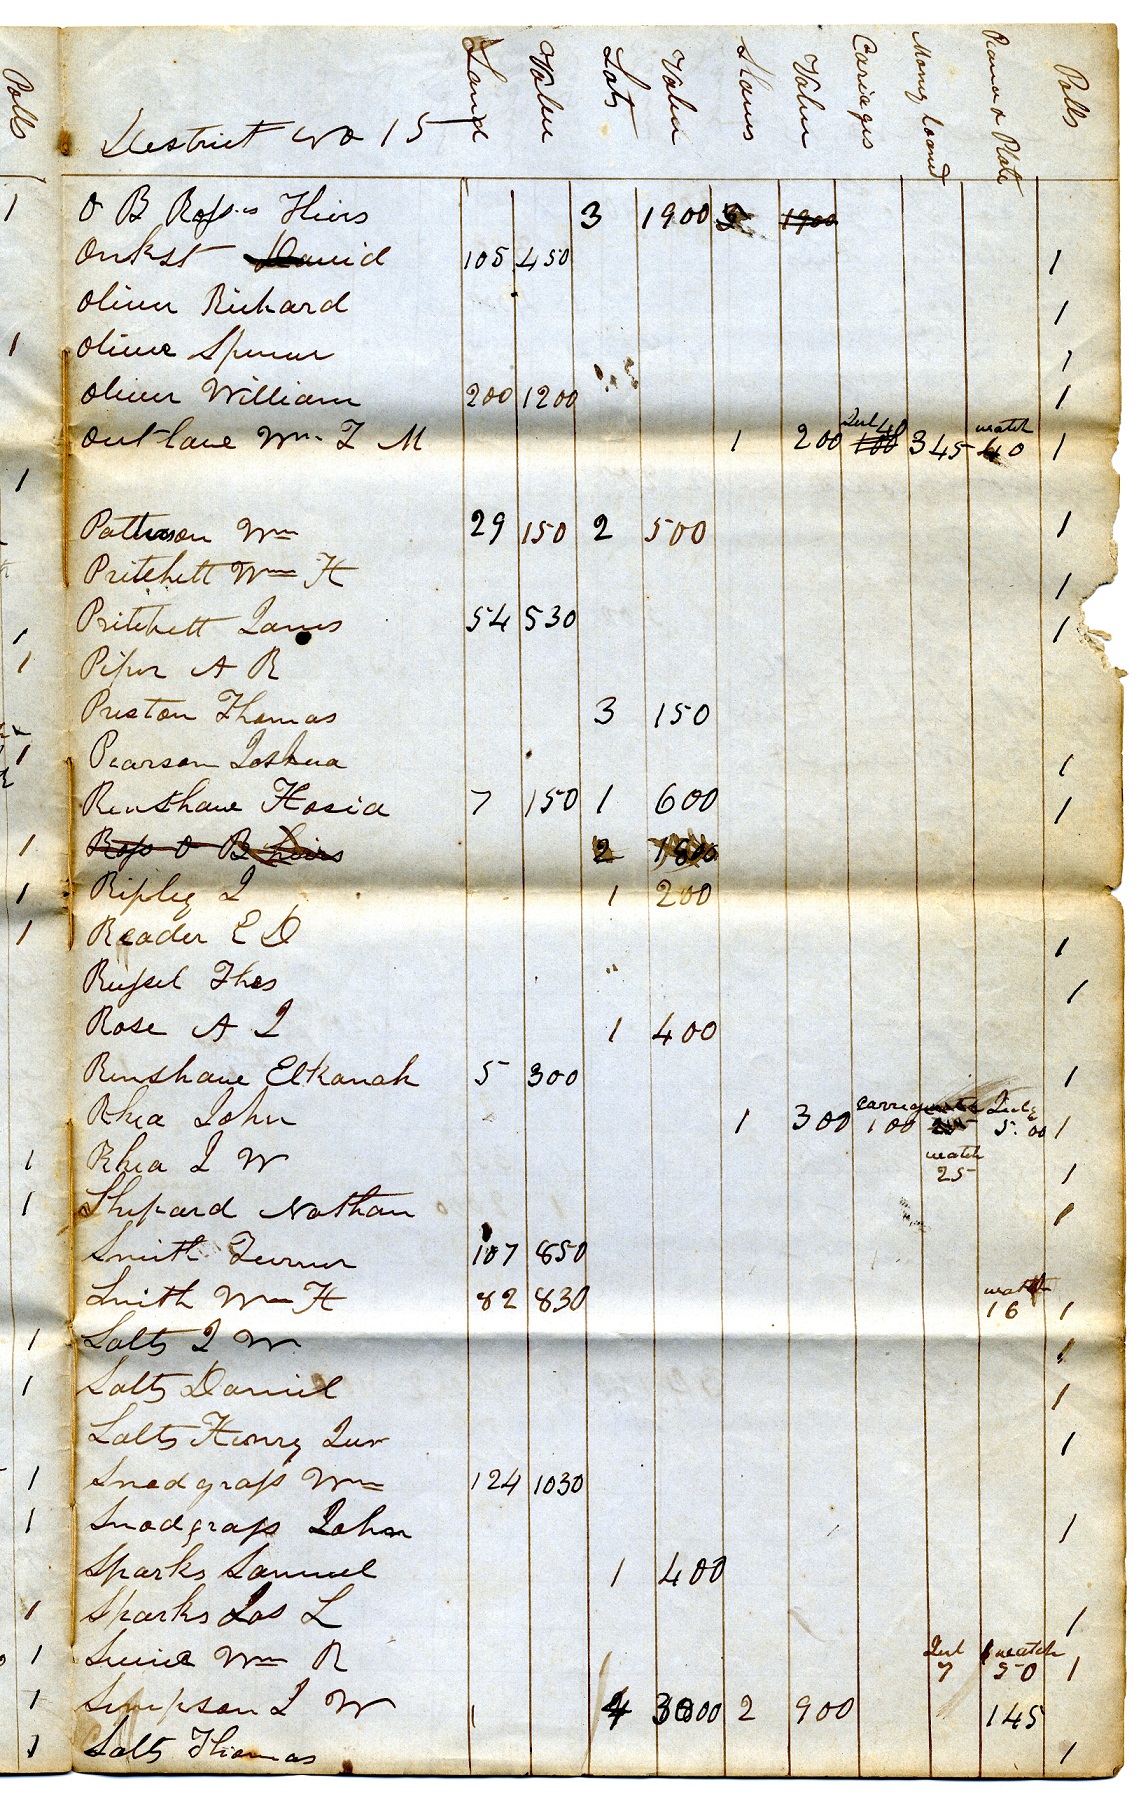 Polls District No 15 Land Value Lots Value Slaves Value Cariages Money Loaned Piano or Plate Polls
1 O B Ross Heirs 3 1900 3 1900
Onkst David 105 450 1
Oliver Richard 1
1 Oliver Spencer 1
Oliver William 200 1200 1
Outlaw Wm F M 1 200 Jul 40 100 345 watch 40 1
1
Patterson Wm 29 150 2 500 1
Pritchett Wm H 1
1 Pritchett James 54 530 1
1 Piper A R
Preston Thomas 3 150
1 Pearson Joshua 1
Renshaw Hosia 7 150 1 600 1
1 Ross O B heirs 2 1800
1 Ripley J 1 200
1 Reader E D 1
Russel Thos 1
Rose A J 1 400
Renshaw Elkanah 5 300 1
Rhea John 1 300 carrige 100 Jule 5.00 1
1 Rhea J W watch 25 1
1 Shepard Nathan 1
Smith Turner 107 850
Smith Wm H 82 830 watch 16 1
1 Salts J W 1
1 Salts Daniel 1
Salts Henry Jur 1
1 Snodgrass Wm 124 1030
1 Snodgrass John 1
Sparks Samuel 1 400
1 Sparks Jas L 1
1 Wm R Jul 7 watch 50 1
1 Simpson J W 4 3000 2 900 145
1 Salts Thomas 1